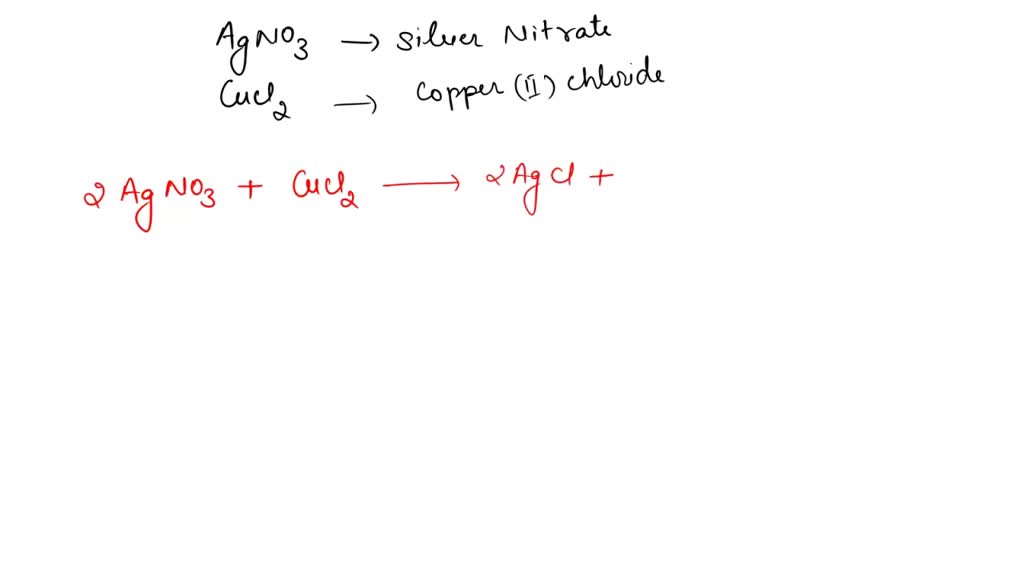 AgNO₃ → Silver Nitrate
CuCl₂ → Copper (II) chloride
2 AgNO₃ + CuCl₂ → 2AgCl +